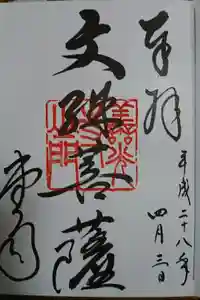 奉拝
平成二十八年
四月三日
文殊菩薩